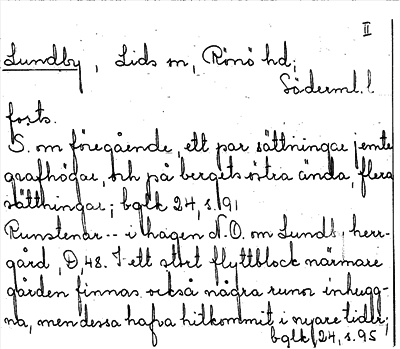 II
Lundby, Lids sn, Rönö hd,
Söderml. l
forts.
S. om föregående, ett par sättningar jemte
grafhögar, och på bergets östra ända, flera
sättningar; bglk 24, s. 91
Runstenar -- i hagen N.O. om Lunds herr-
gård, D, 48. I ett stort flyttblock närmare
gården finnas också några runor inhugg-
na, men dessa hafva hitkommit i nyare tider;
bglk 24, s. 95